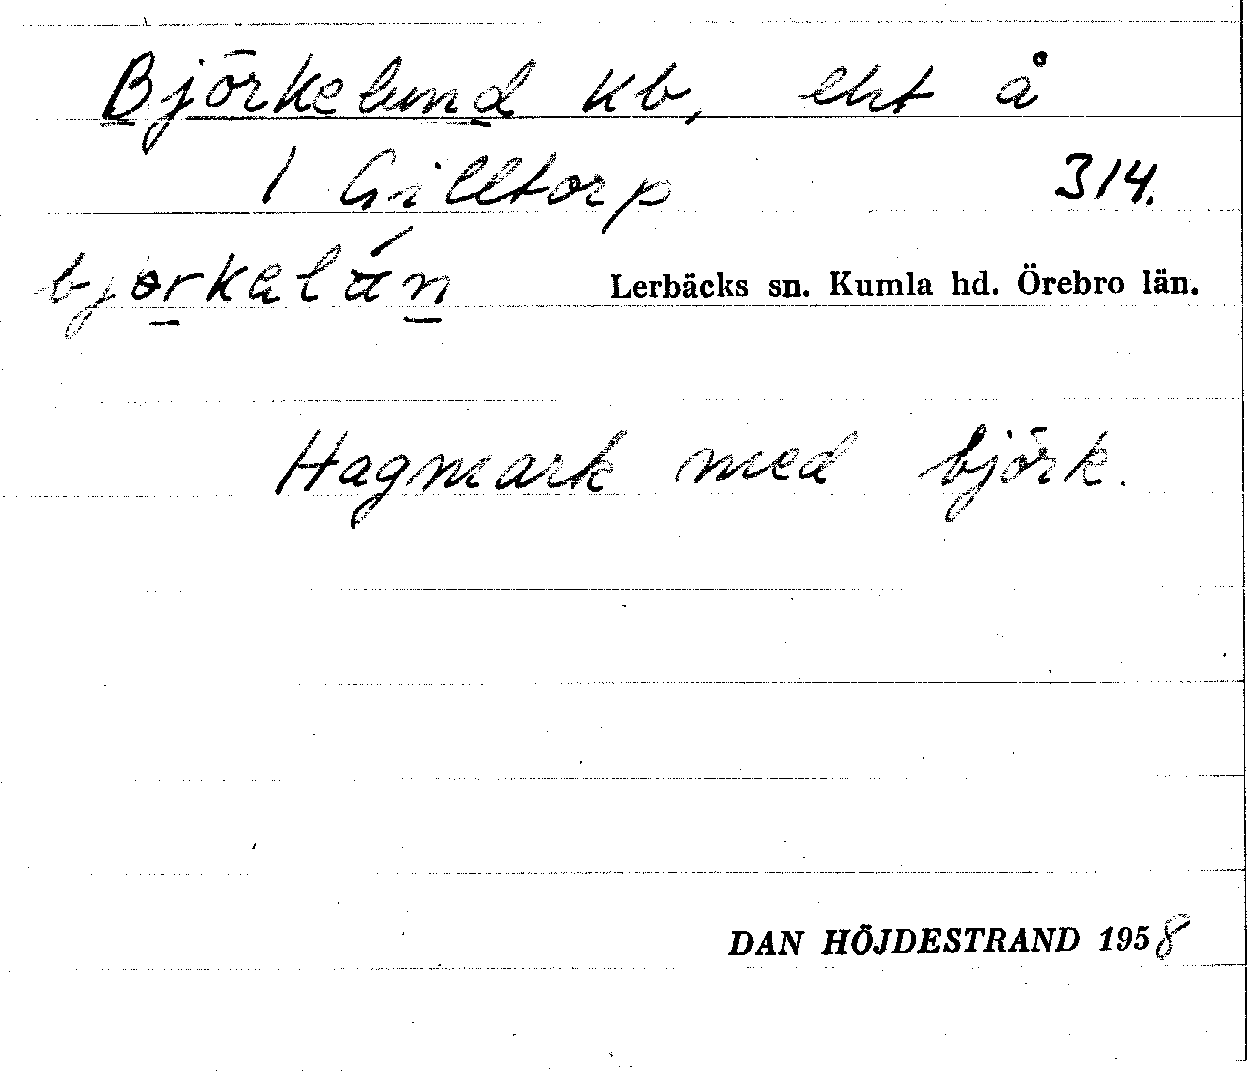 Björkelund kb, eht å
1 Gilltorp 314.
bjorkalún Lerbäcks sn. Kumla hd. Örebro län.
Hagmark med björk.
DAN HÖJDESTRAND 1958